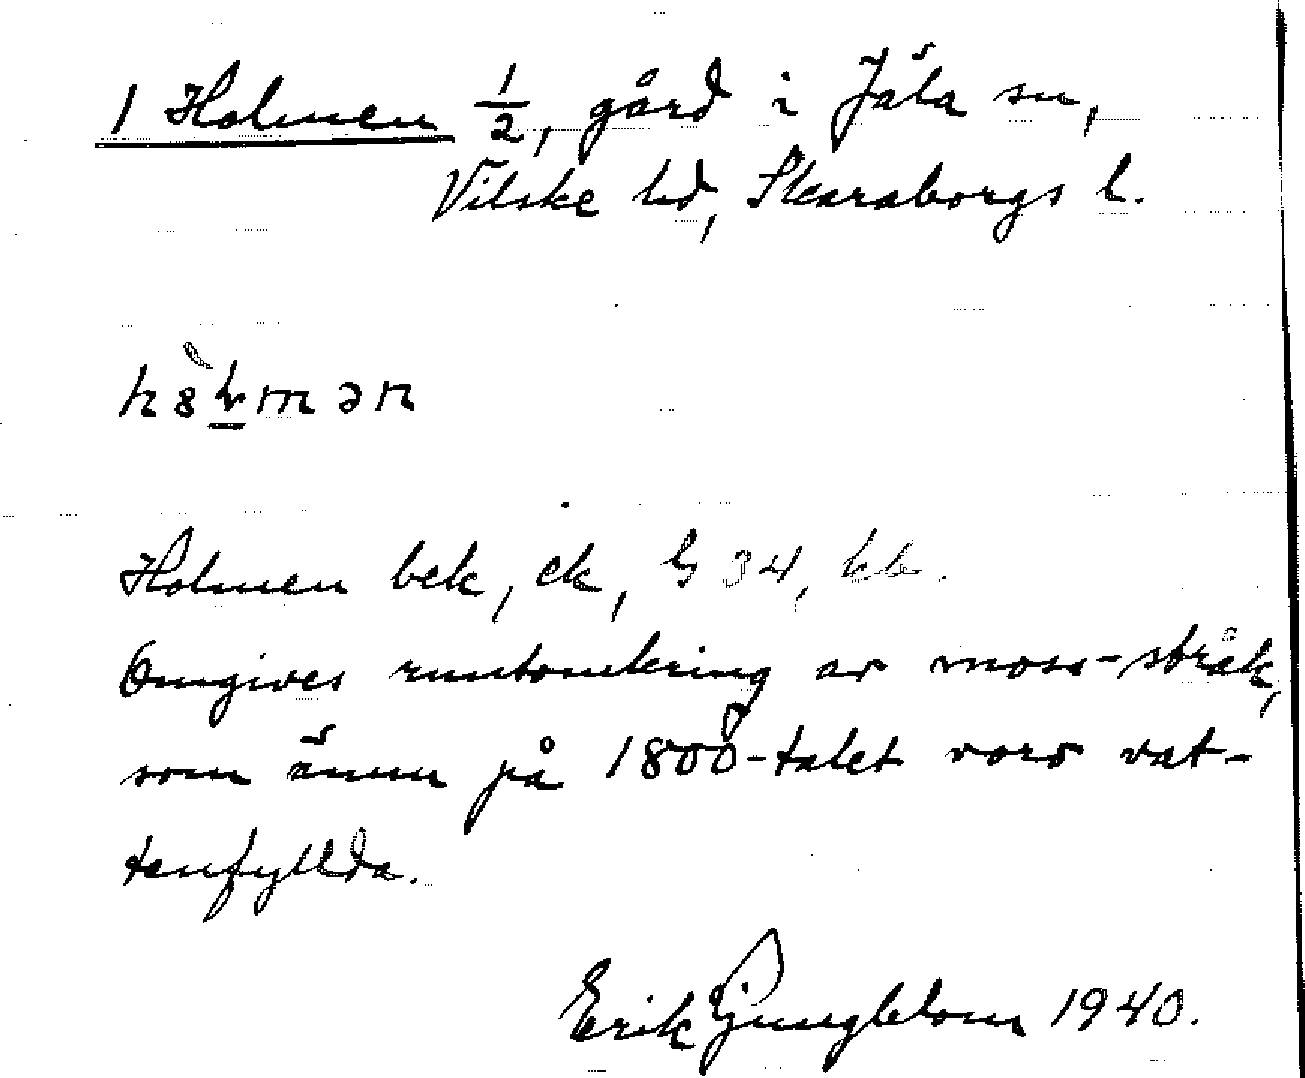 1 Holmen 1/2, gård i Jäla sn,
Vilske hd, Skaraborgs l.
Holmen bek, ek, G 34, kk.
Omgives runtomkring av moss-stråk,
som ännu på 1800-talet voro vat-
tenfyllda.
Erik Ljungblom 1940.